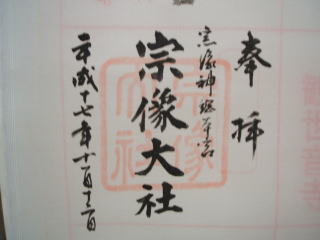 奉拝
宗像神社本宮
宗像大社
平成十七年十一月十二日